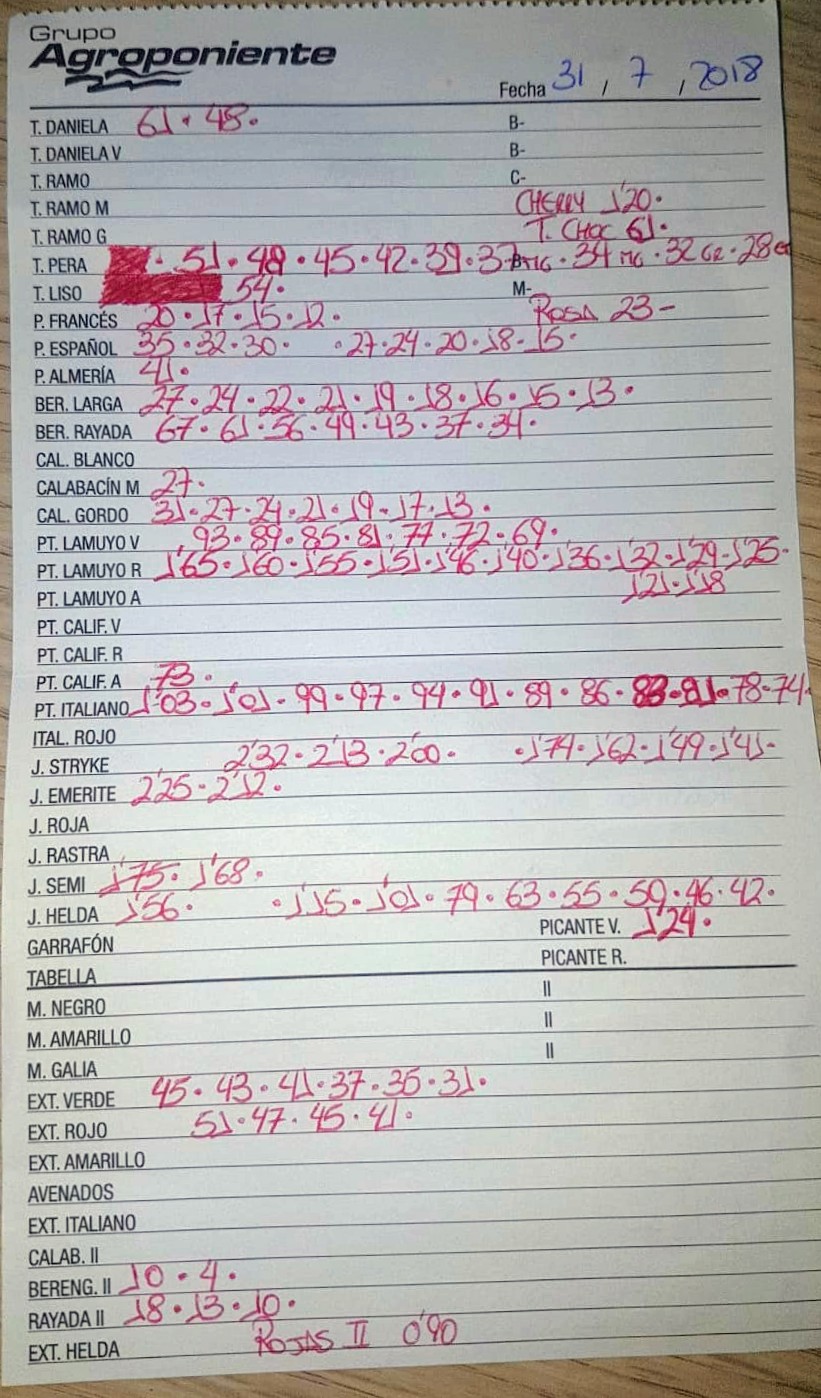 Grupo
Agroponiente
Fecha 31 / 7 / 2018
T. DANELA 61 · 48 · B-
T. DANIELA V B-
T. RAMO C-
T. RAMO M CHERRY 1'20 ·
T. RAMO G T. CHOC 61 ·
T. PERA · 51 · 48 · 45 · 42 · 39 · 37 MG · 34 MG · 32 GR · 28 GR
T. LISO 54 · M-
P. FRANCÉS 20 · 17 · 15 · 12 · ROSA 23 -
P. ESPAÑOL 35 · 32 · 30 · · 27 · 24 · 20 · 18 · 15 ·
P. ALMERÍA 41 ·
BER. LARGA 27 · 24 · 22 · 21 · 19 · 18 · 16 · 15 · 13 ·
BER. RAYADA 67 · 61 · 56 · 49 · 43 · 37 · 34 ·
CAL. BLANCO
CALABACÍN M 27 ·
CAL. GORDO 31 · 27 · 24 · 21 · 19 · 17 · 13 ·
PT. LAMUYO V 93 · 89 · 85 · 81 · 77 · 72 · 69 ·
PT. LAMUYO R 1'65 · 1'60 · 1'55 · 1'51 · 1'46 · 1'40 · 1'36 · 1'32 · 1'29 · 1'25 ·
1'21 · 1'18
PT. LAMUYO A
PT. CALIF. V
PT. CALIF. R
PT. CALIF. A 73 ·
PT. ITALIANO 1'03 · 1'01 · 99 · 97 · 94 · 91 · 89 · 86 · 83 · 81 · 78 · 74 ·
ITAL. ROJO
J. STRYKE 2'32 · 2'13 · 2'00 · · 1'74 · 1'62 · 1'49 · 1'41 ·
J. EMERITE 2'25 · 2'12 ·
J. ROJA
J. RASTRA
J. SEMI 1'75 · 1'68 ·
J. HELDA 1'56 · · 1'15 · 1'01 · 79 · 63 · 55 · 50 · 46 · 42 ·
GARRAFÓN PICANTE V. 1'24 ·
TABELLA PICANTE R.
M. NEGRO II
M. AMARILLO II
M. GALIA II
EXT. VERDE 45 · 43 · 41 · 37 · 35 · 31 ·
EXT. ROJO 51 · 47 · 45 · 41 ·
EXT. AMARILLO
AVENADOS
EXT. ITALIANO
CALAB. II
BERENG. II 10 · 4 ·
RAYADA II 18 · 13 · 10 ·
EXT. HELDA ROJAS II 0'90